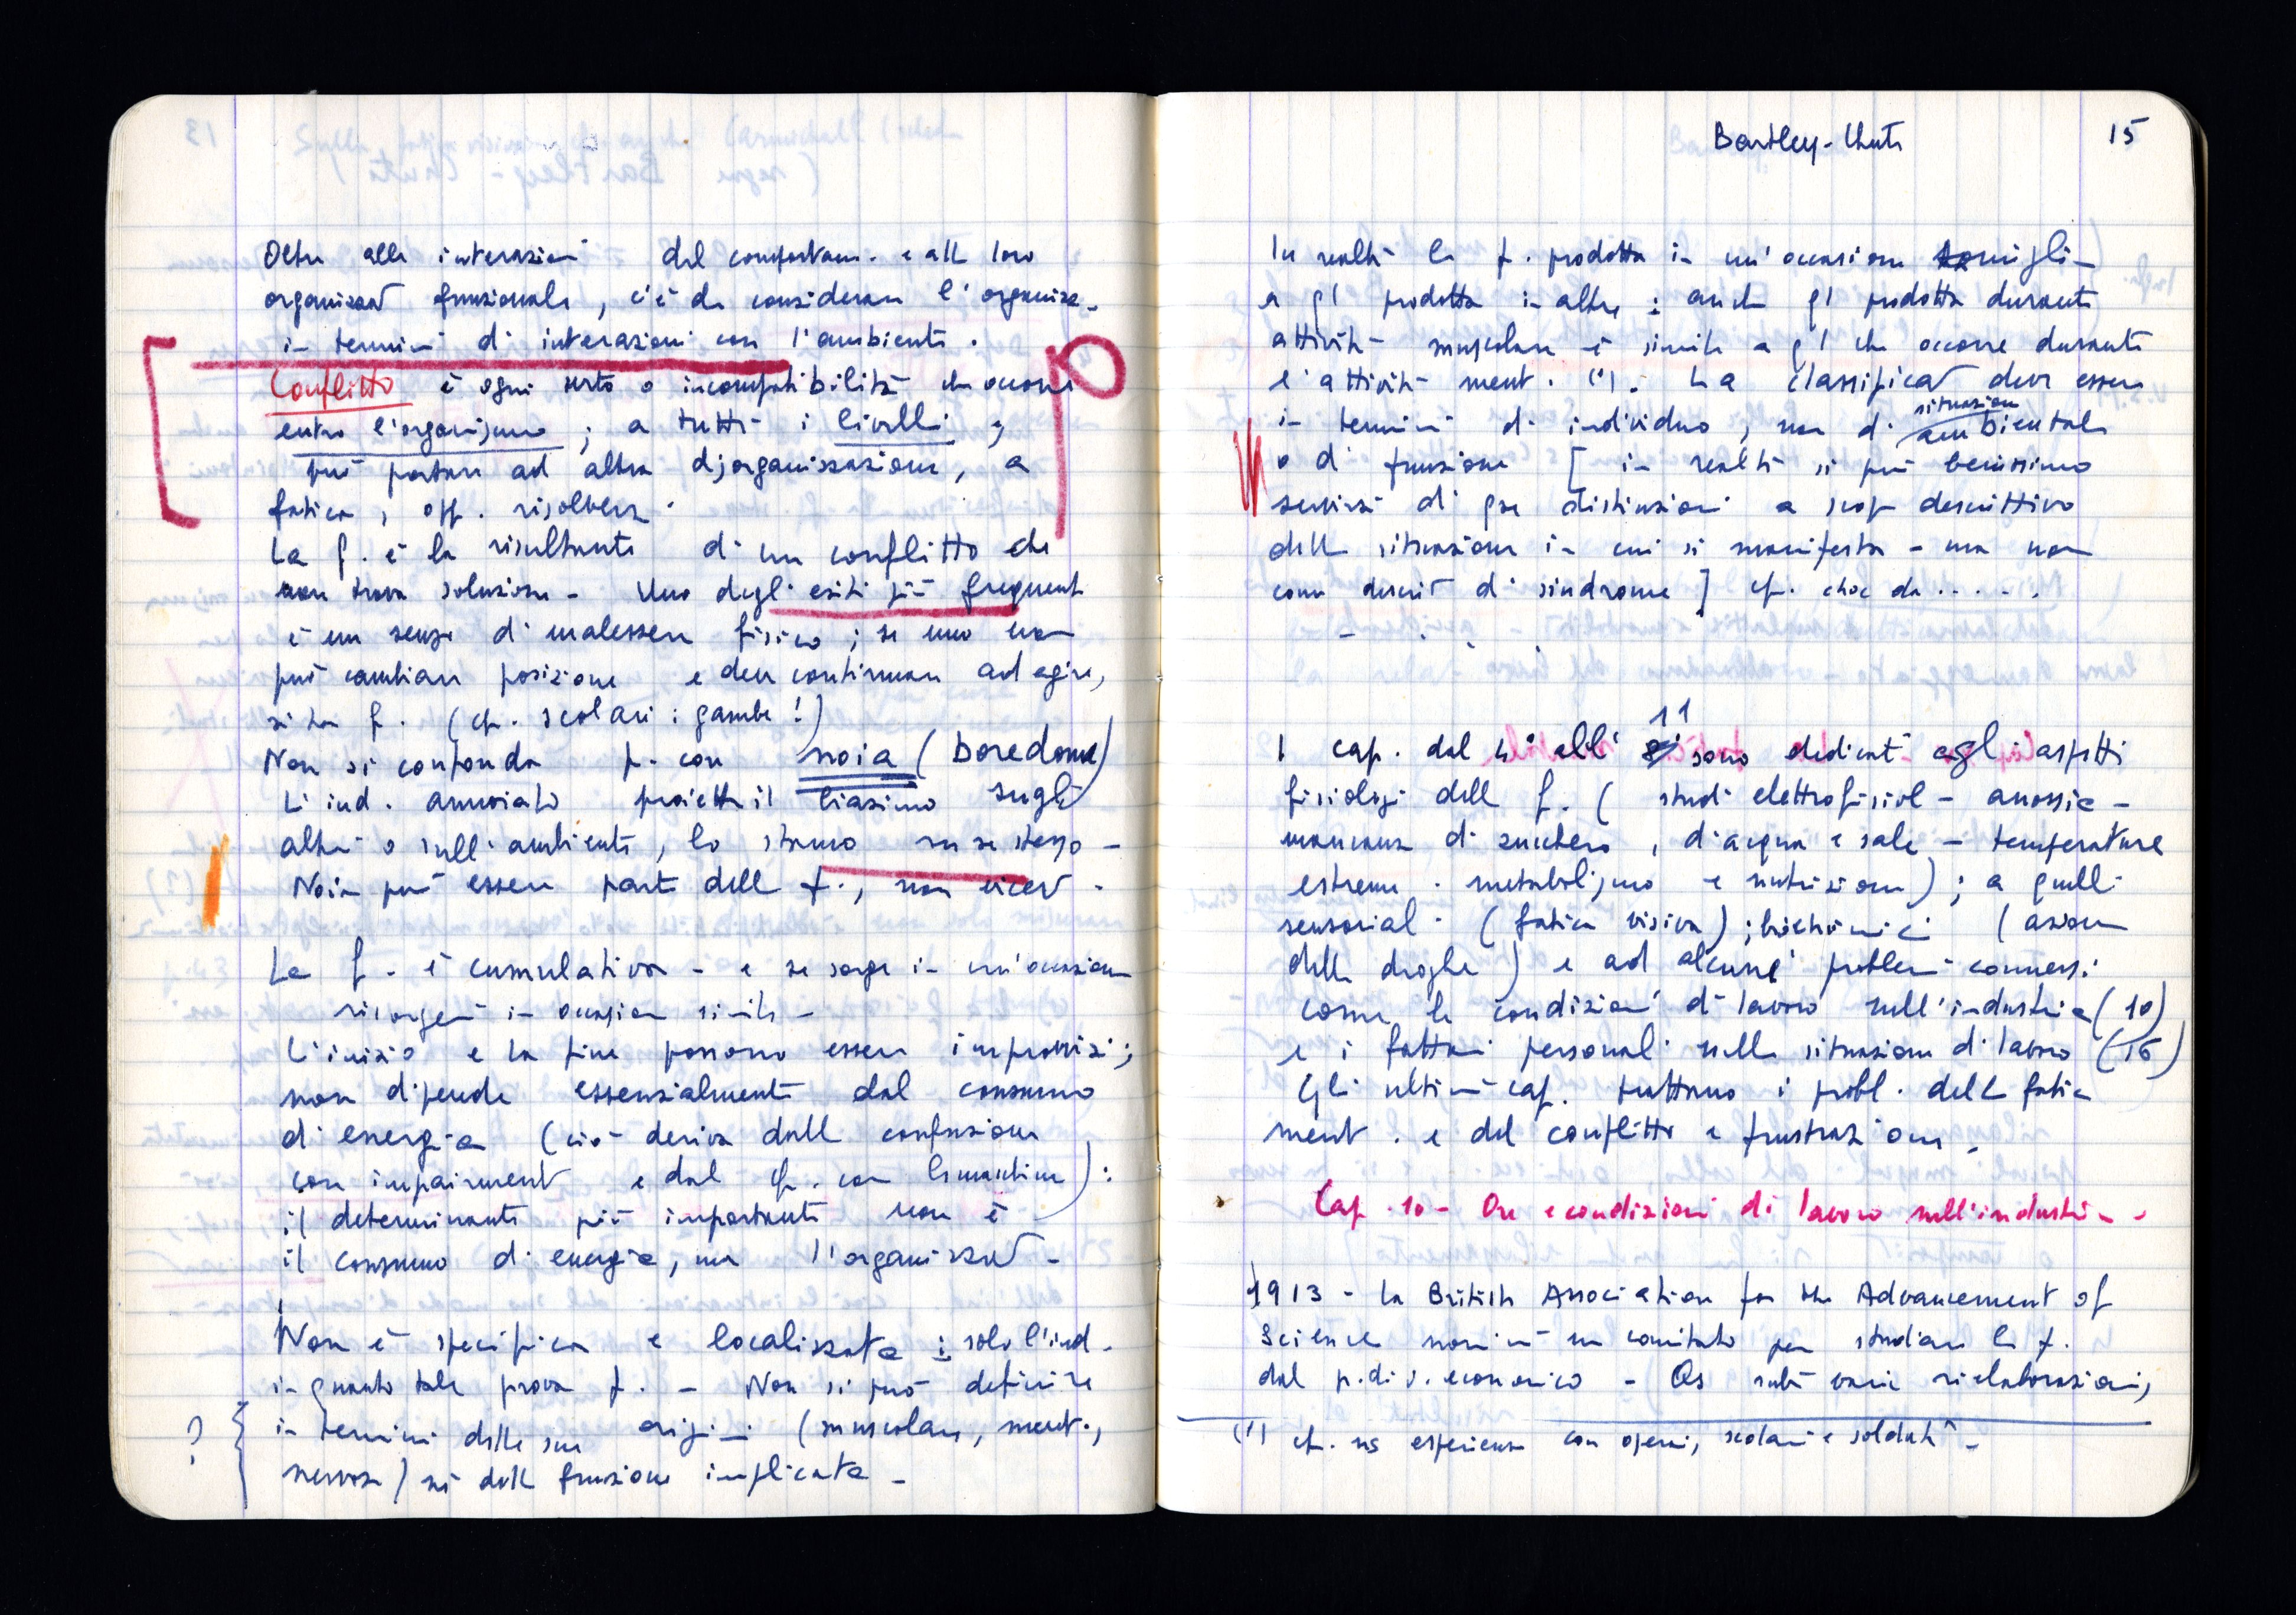 Oltre alle interazioni del comportam. e alla loro
organizzaz funzionale, c'è da considerare l'organizz.
in termini di interazioni con l'ambiente.
Conflitto è ogni sorta o incompatibilità che occorre
entro l'organismo ; a tutti i livelli ;
può portare ad altra disorganizzazione, a
fatica, opp. risolversi.
La f. è la risultante di un conflitto che
non trova soluzione - Uno degli esiti più frequenti
è un senso di malessere fisico ; se uno non
può cambiare posizione e deve continuare ad agire,
si ha f. (cfr. scolari : gambe !)
Non si confonda f. con noia (boredome)
L'ind. annoiato proietta il biasimo sugli
altri o sull'ambiente, lo stanco su se stesso -
Noia può essere parte della f., non vicev.
La f. è cumulativa - e se sorge in un'occasione
risorgerà in occasioni simili -
L'inizio e la fine possono essere improvvisi ;
non dipende essenzialmente dal consumo
di energia (ciò deriva dalla confusione
con impairment e dal cfr. con la macchina) :
il determinante più importante non è
il consumo di energia, ma l'organizzaz -
Non è specifica e localizzata : solo l'ind.
in quanto tale prova f. - Non si può definire
? in termini delle sue origini (muscolare, ment.,
nervosa) né della funzione implicata -
Bartley - Chute 15
In realtà la f. prodotta in un'occasione somigli-
a q/ prodotta in altre : anche q/ prodotta durante
attività muscolare è simile a q/ che occorre durante
l'attività ment. (1). La classificaz deve essere
in termini di individuo, non di situazione ambientale
o di funzione [ in realtà si può benissimo
servirsi di qse distinzioni a scopo descrittivo
della situazione in cui si manifesta - ma non
come descriz di sindrome ] cfr. choc da . . . . .
I cap. dal 4° all' 11 sono dedicati agli aspetti
fisiologi della f. ( studi elettrofisiol - anossia -
mancanza di zucchero, d'acqua e sale - temperature
estreme - metabolismo e nutrizione) ; a quelli
sensoriali (fatica visiva) ; biochimici (azione
delle droghe) e ad alcuni problemi connessi
come le condizioni di lavoro nell'industria (10)
e i fattori personali nella situazione di lavoro (16)
Gli ultimi cap. trattano i probl. della fatica
ment. e del conflitto e frustrazione.
Cap. 10 - Ore e condizioni di lavoro nell'industria -
1913 - La British Association for the Advancement of
Science nominò un comitato per studiare la f.
dal p. di v. economico - Qs subì varie rielaborazioni,
(1) cfr. ns esperienze con operai, scolari e soldati -